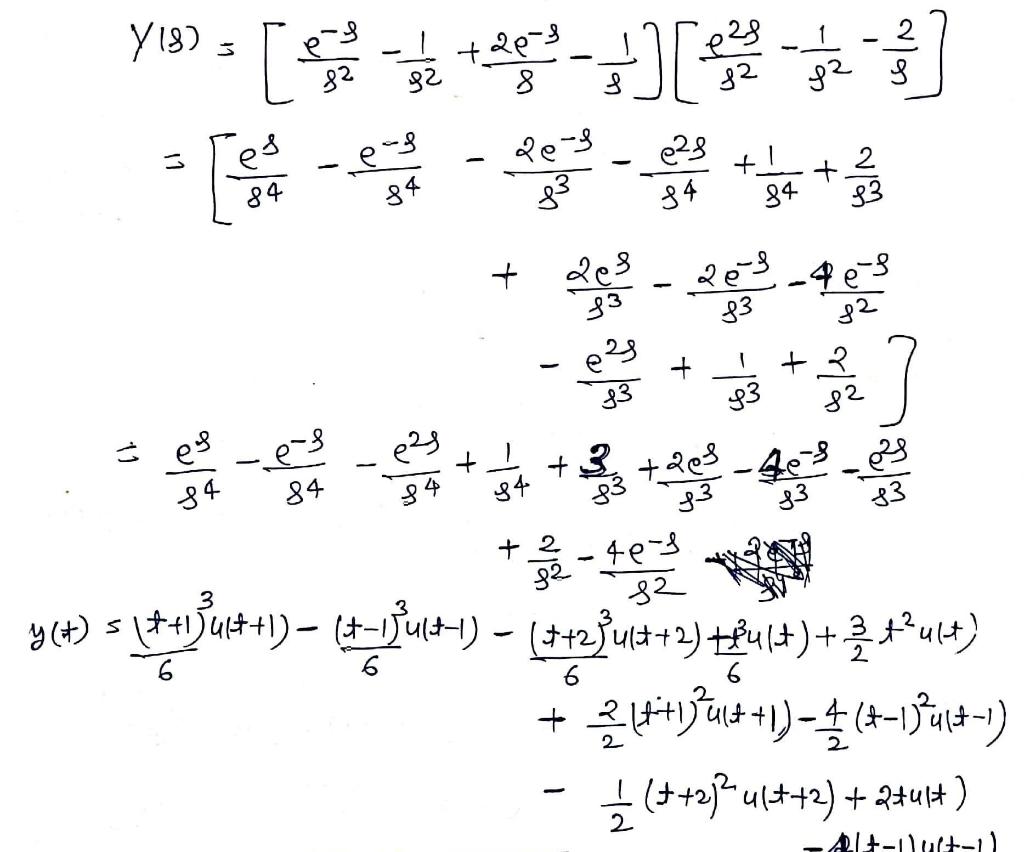 Y(s) = [ e^-s/s² - 1/s² + 2e^-s/s - 1/s ] [ e^2s/s² - 1/s² - 2/s ]
= [ e^s/s⁴ - e^-s/s⁴ - 2e^-s/s³ - e^2s/s⁴ + 1/s⁴ + 2/s³
+ 2e^s/s³ - 2e^-s/s³ - 4e^-s/s²
- e^2s/s³ + 1/s³ + 2/s² ]
= e^s/s⁴ - e^-s/s⁴ - e^2s/s⁴ + 1/s⁴ + 3/s³ + 2e^s/s³ - 4e^-s/s³ - e^2s/s³
+ 2/s² - 4e^-s/s²
y(t) = (t+1)³u(t+1)/6 - (t-1)³u(t-1)/6 - (t+2)³u(t+2)/6 + t³u(t)/6 + 3/2 t²u(t)
+ 2/2 (t+1)²u(t+1) - 4/2 (t-1)²u(t-1)
- 1/2 (t+2)² u(t+2) + 2tu(t)
- 4(t-1)u(t-1)